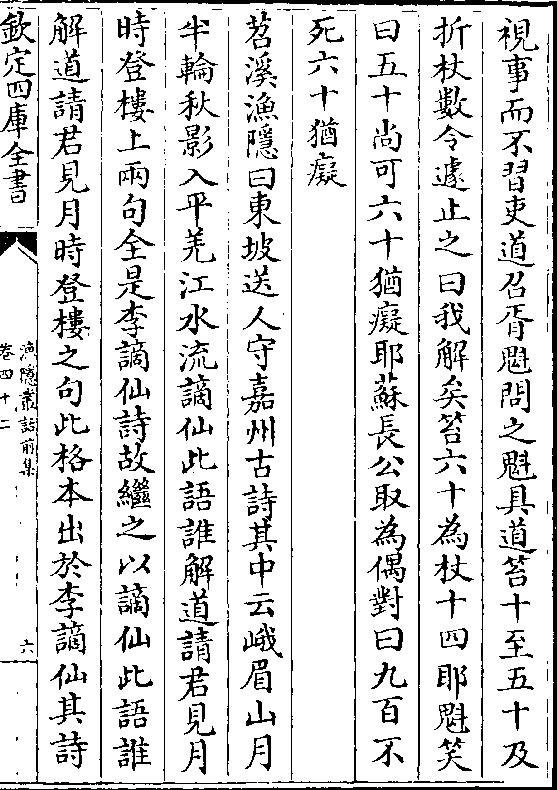 視事而不習吏道召胥魁問之魁具道笞十至五十及
折杖數令遽止之曰我解矣笞六十為杖十四耶魁笑
曰五十尚可六十猶癡耶蘇長公取為偶對曰九百不
死六十猶癡
苕溪漁隱曰東坡送人守嘉州古詩其中云峨眉山月
半輪秋影入平羌江水流謫仙此語誰解道請君見月
時登樓上兩句全是李謫仙詩故繼之以謫仙此語誰
解道請君見月時登樓之句此格本出於李謫仙其詩
欽定四庫全書
漁隱叢話前集
卷四十二
六